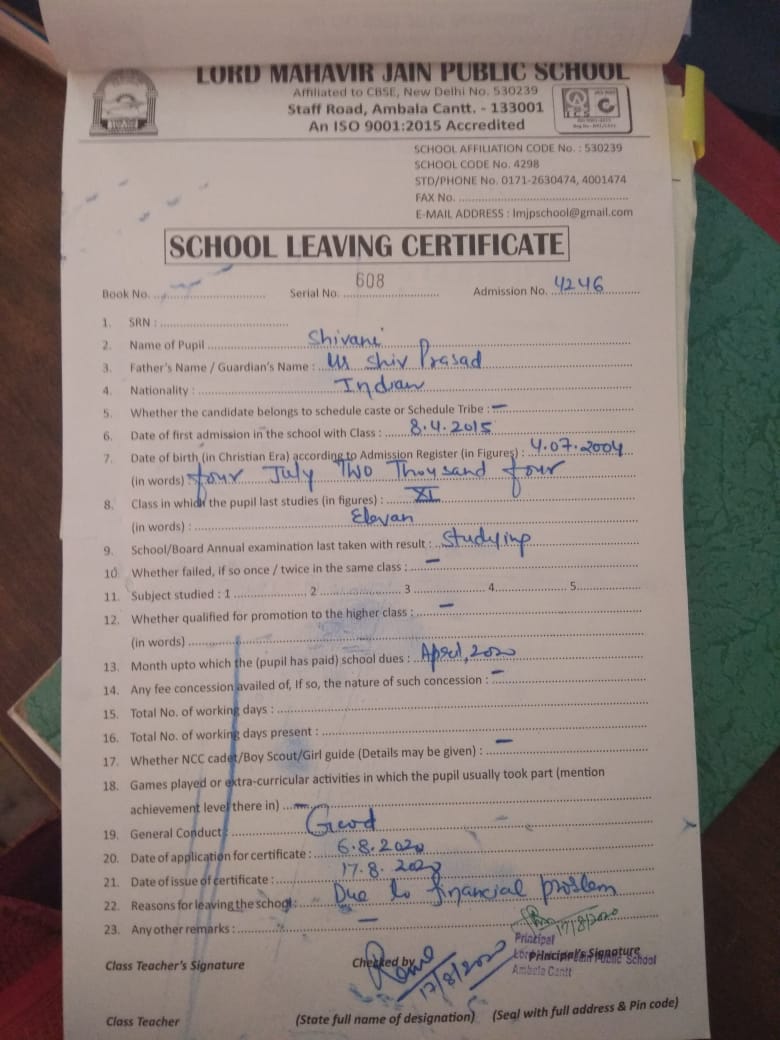 LORD MAHAVIR JAIN PUBLIC SCHOOL
Affiliated to CBSE, New Delhi No. 530239
Staff Road, Ambala Cantt. - 133001
An ISO 9001:2015 Accredited
SCHOOL AFFILIATION CODE No. : 530239
SCHOOL CODE No. 4298
STD/PHONE No. 0171-2630474, 4001474
FAX No.
E-MAIL ADDRESS : lmjpschool@gmail.com
SCHOOL LEAVING CERTIFICATE
Book No. Serial No. 608 Admission No. 4246
1. SRN :
2. Name of Pupil Shivani
3. Father's Name / Guardian's Name : Shiv Prasad
4. Nationality : Indian
5. Whether the candidate belongs to schedule caste or Schedule Tribe : -
6. Date of first admission in the school with Class : 8.4.2015
7. Date of birth (in Christian Era) according to Admission Register (in Figures) : 4.07.2004
(in words) four July Two Thousand four
8. Class in which the pupil last studies (in figures) : XI
(in words) : Elevan
9. School/Board Annual examination last taken with result : Studying
10. Whether failed, if so once / twice in the same class : -
11. Subject studied : 1 2 3 4 5
12. Whether qualified for promotion to the higher class : -
(in words)
13. Month upto which the (pupil has paid) school dues : April, 2020
14. Any fee concession availed of, If so, the nature of such concession : -
15. Total No. of working days :
16. Total No. of working days present : -
17. Whether NCC cadet/Boy Scout/Girl guide (Details may be given) : -
18. Games played or extra-curricular activities in which the pupil usually took part (mention
achievement level there in) -
19. General Conduct : Good
20. Date of application for certificate : 6.8.2020
21. Date of issue of certificate : 17.8.2020
22. Reasons for leaving the school : Due to financial problem
23. Any other remarks : -
17/8/2020
Principal
Class Teacher's Signature Checked by Principal's Signature
Public School
Ambala Cantt
17/8/2020
Class Teacher (State full name of designation) (Seal with full address & Pin code)